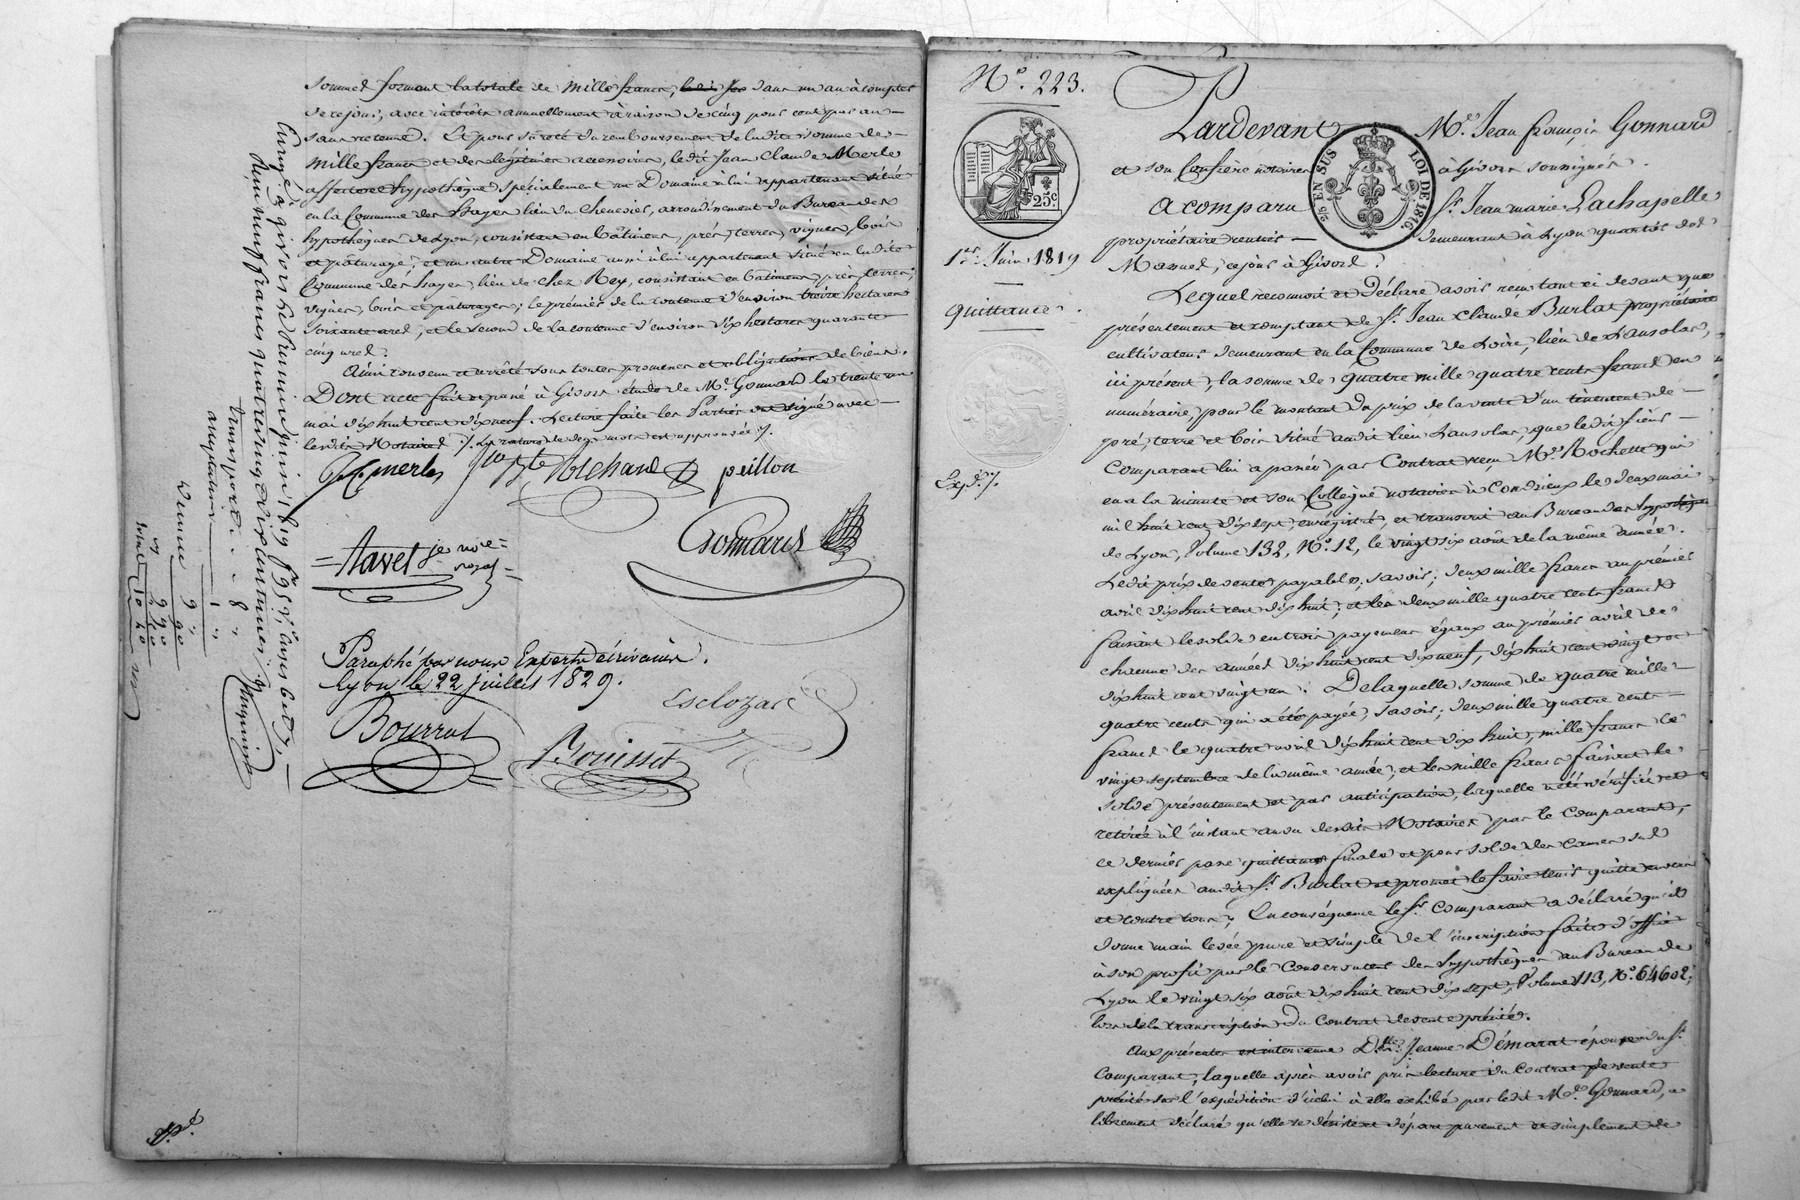 sommes formant la totale de mille francs, dans un an à compter
de ce jour, avec intérêts annuellement à raison de cinq pour cent par an
sans retenue. Et pour sureté du remboursement de ladite somme de
mille francs et des légitimes accessoires, ledit Jean Claude Merle
affecte et hypothèque spécialement un Domaine à lui appartenant situé
en la Commune des hayes lieu du arrondissement du Bureau des
hypothèques de Lyon, consistant en bâtiments, prés, terres, vignes, bois
et pâturage; et un autre Domaine aussi à lui appartenant situé en ladite
Commune des hayes, lieu de chez Rey, consistant en bâtiments, prés, terres,
vignes, bois et pâturages; le premier de la contenue d'environ treize hectares
soixante ares, et le second de la contenue d'environ six hectares quarante
cinq ares.
Ainsi convenu et arrêté sous toutes promesses et obligations de biens.
Dont acte fait et passé à Givors étude de Me. Gonnard le trente un
mai dix huit cent dix neuf. Lecture faite les Parties ont signé avec
lesdits Notaires ./. La rature de deux mots est approuvée ./.
J. C. merle Richard peillon
= favel je noe =
royal =
Gonnard
Paraphé par nous Experts écrivains.
Lyon le 22 juillet 1829.
Esclozas
Bourrat
Bouisset
Enregé. à givors le premier juin 1819
dix neuf francs quatre vingt dix centimes
transport . . 8 "
1 "
9 "
90
9 90
10 40
Expé.
N°. 223.
Pardevant Me. Jean françois Gonnard
et son Confrère notaires à Givors soussignés.
A comparu Sr. Jean marie Lachapelle
propriétaire rentier demeurant à Lyon quartier de
ce jour à Givors.
25c
2/5 EN SUS LOI DE 1816
1er. Juin 1819
Quittance.
Expé. ./.
Lequel reconnoit et déclare avoir reçu tant ci devant que
présentement et comptant de Sr. Jean Claude Burlat propriétaire
cultivateur demeurant en la Commune de Loire, lieu de Lansolas,
ici présent, la somme de quatre mille quatre cents francs en
numéraire, pour le montant du prix de la vente d'un tenement de
pré, terre et bois situé audit lieu Lansolas, que ledit sieur
Comparant lui a passée par Contrat reçu Me. Rochette qui
en a la minute et son Collègue notaires à Condrieux le deux mai
mil huit cent dix sept, enregistré, et transcrit au Bureau des hypothèques
de Lyon, Volume 132, N°. 12, le vingt six août de la même année.
Ledit prix de vente payable, savoir; deux mille francs au premier
avril dix huit cent dix huit; et les deux mille quatre cents francs
faisant le solde en trois payemens égaux au premier avril de
chacune des années dix huit cent dix neuf, dix huit cent vingt et
dix huit cent vingt un. De laquelle somme de quatre mille
quatre cents qui a été payée, savoir; deux mille quatre cents
francs le quatre avril dix huit cent dix huit, mille francs le
vingt septembre de la même année, et les mille francs faisant le
solde présentement et par anticipation, laquelle a été vérifiée et
retirée à l'instant au vu desdits Notaires par le Comparant,
ce dernier passe quittance finale et pour solde des causes sus
expliquées audit Sr. Burlat et promet le faire tenir quitte envers
et contre tous; En conséquence le Sr. Comparant a déclaré qu'il
donne main levée pure et simple de l'inscription faite d'office
à son profit par le Conservateur des hypothèques au Bureau de
Lyon le vingt six août dix huit cent dix sept, Volume 113, N°. 64602;
lors de la transcription du Contrat de vente précité.
Aux présentes est intervenue Dlle. Jeanne Démarat épouse du Sr.
Comparant, laquelle après avoir pris lecture du Contrat de vente
précité sur l'expédition d'icelui à elle exhibé par ledit Me. Gonnard, a
librement déclaré qu'elle se désiste et départ purement et simplement de